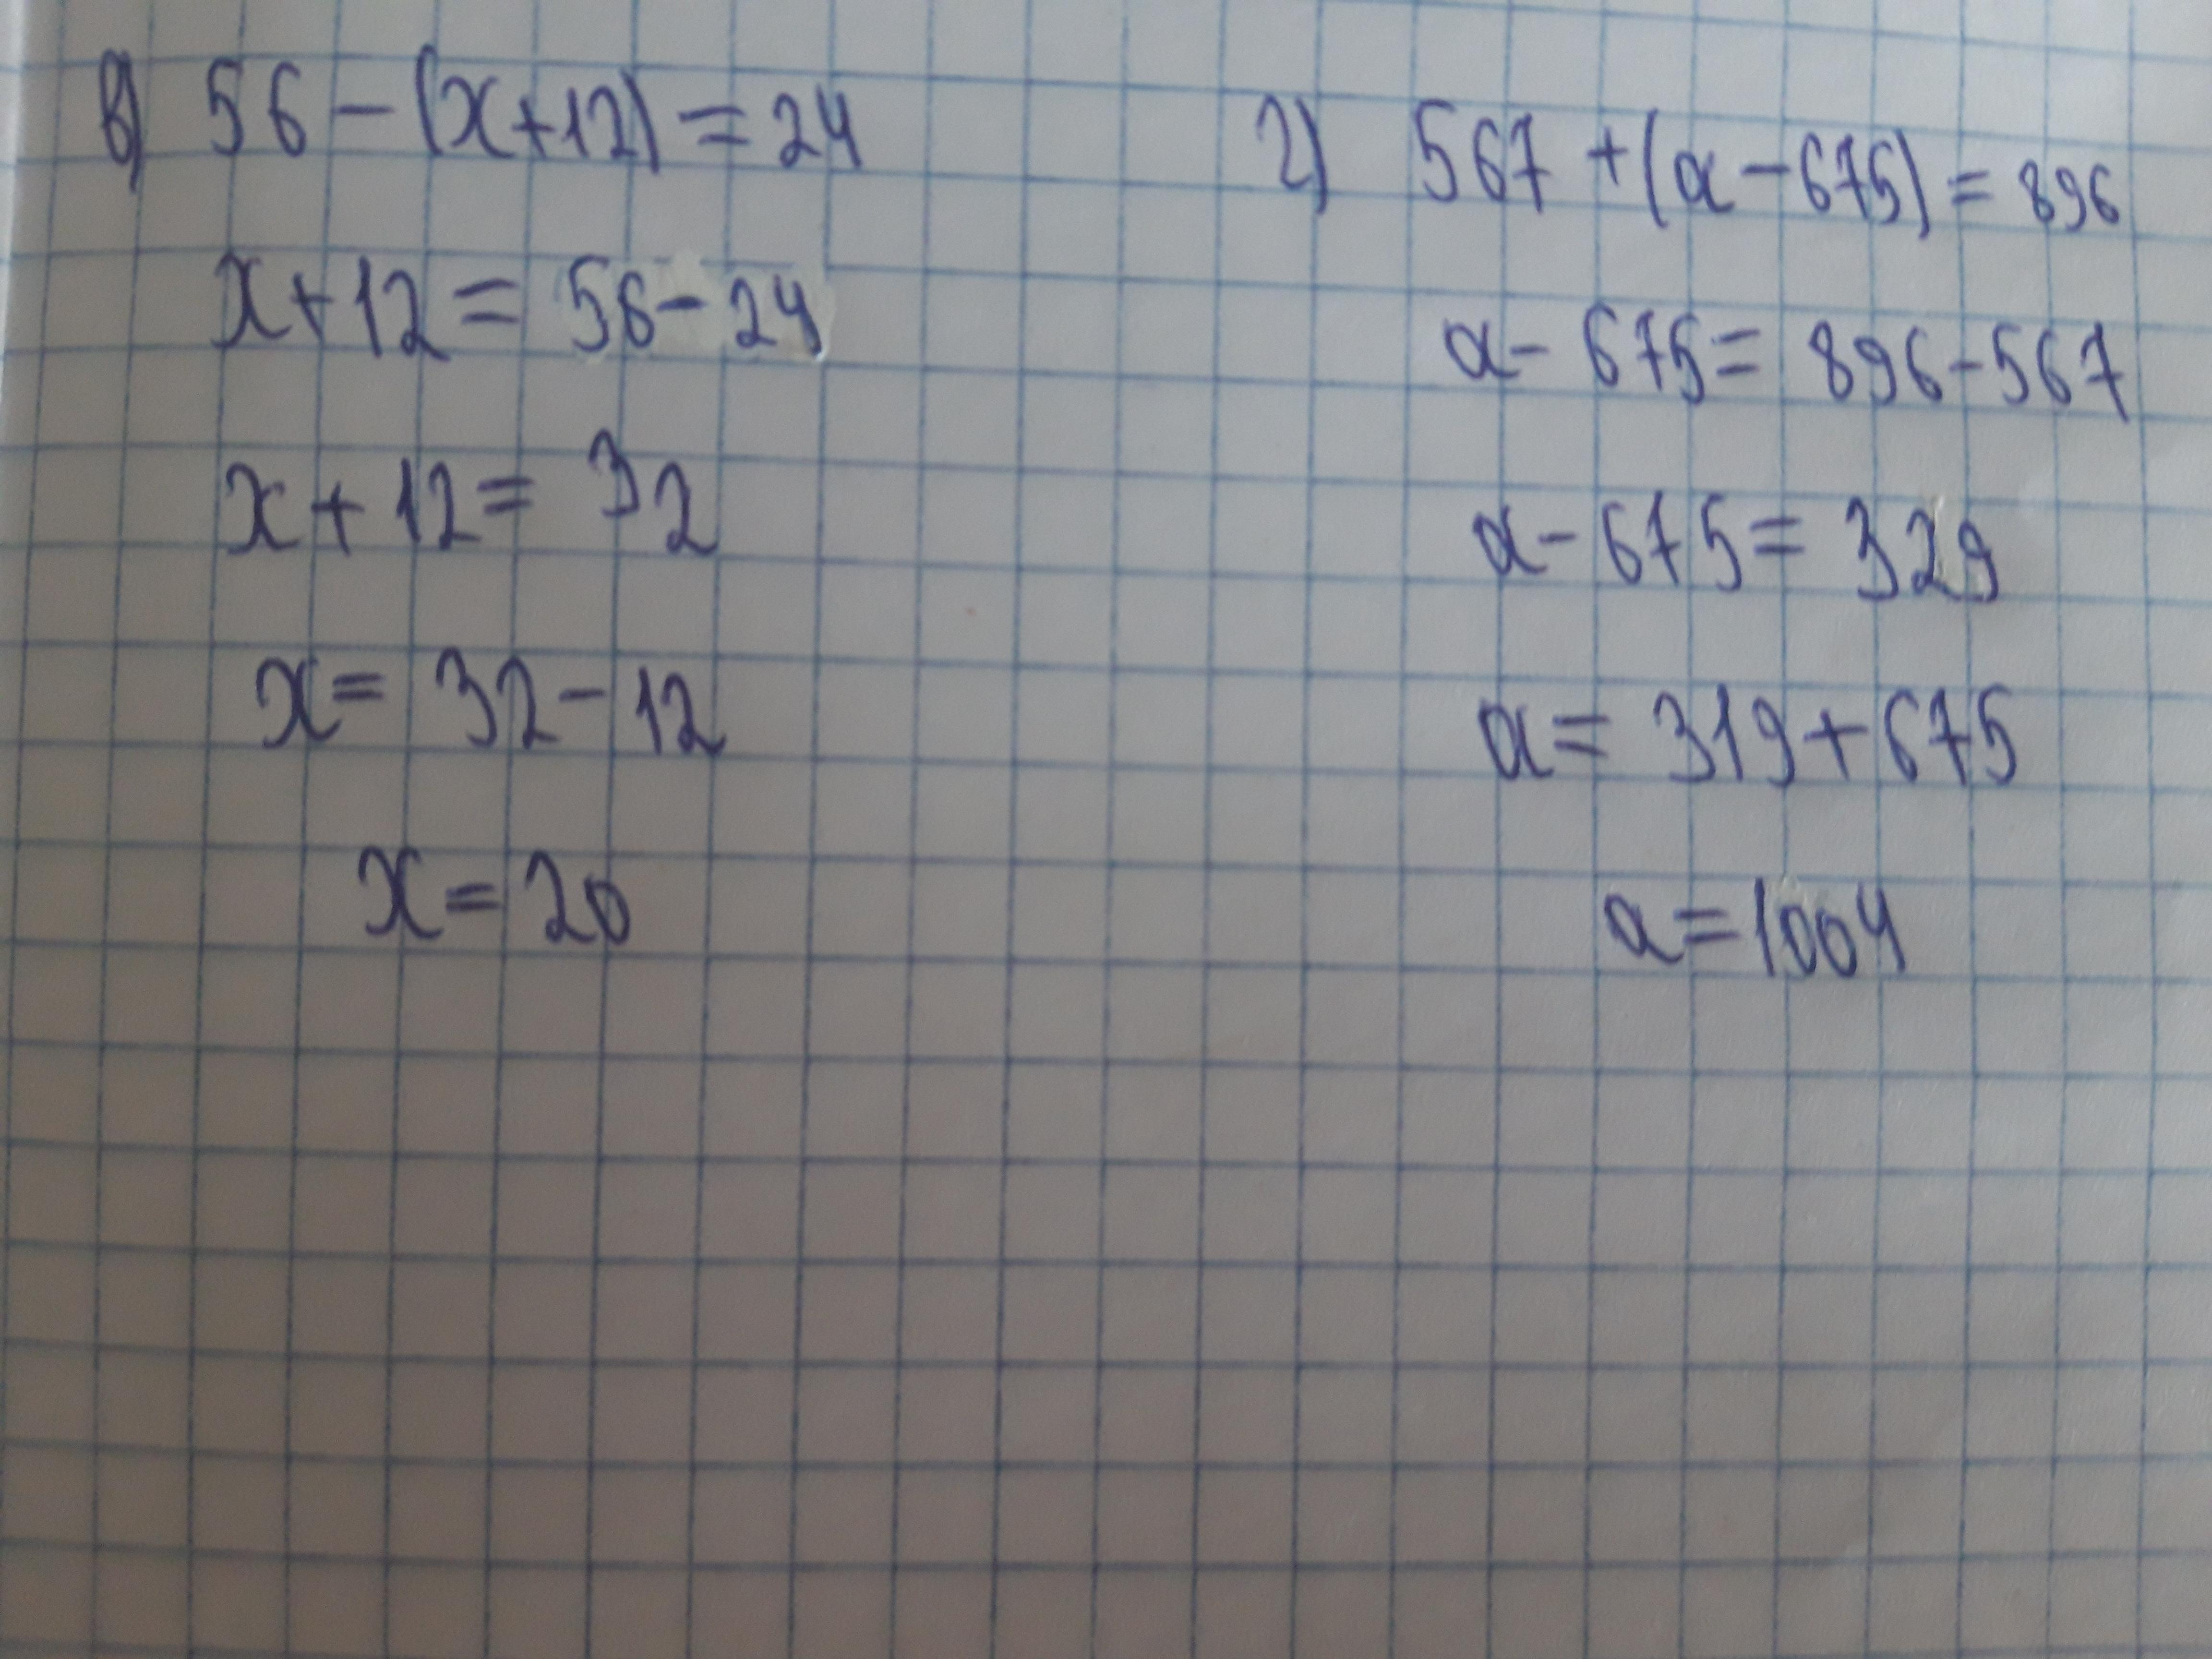 в) 56 - (x+12) = 24
x+12 = 56 - 24
x + 12 = 32
x = 32 - 12
x = 20
г) 567 + (a - 675) = 896
a - 675 = 896 - 567
a - 675 = 329
a = 319 + 675
a = 1004